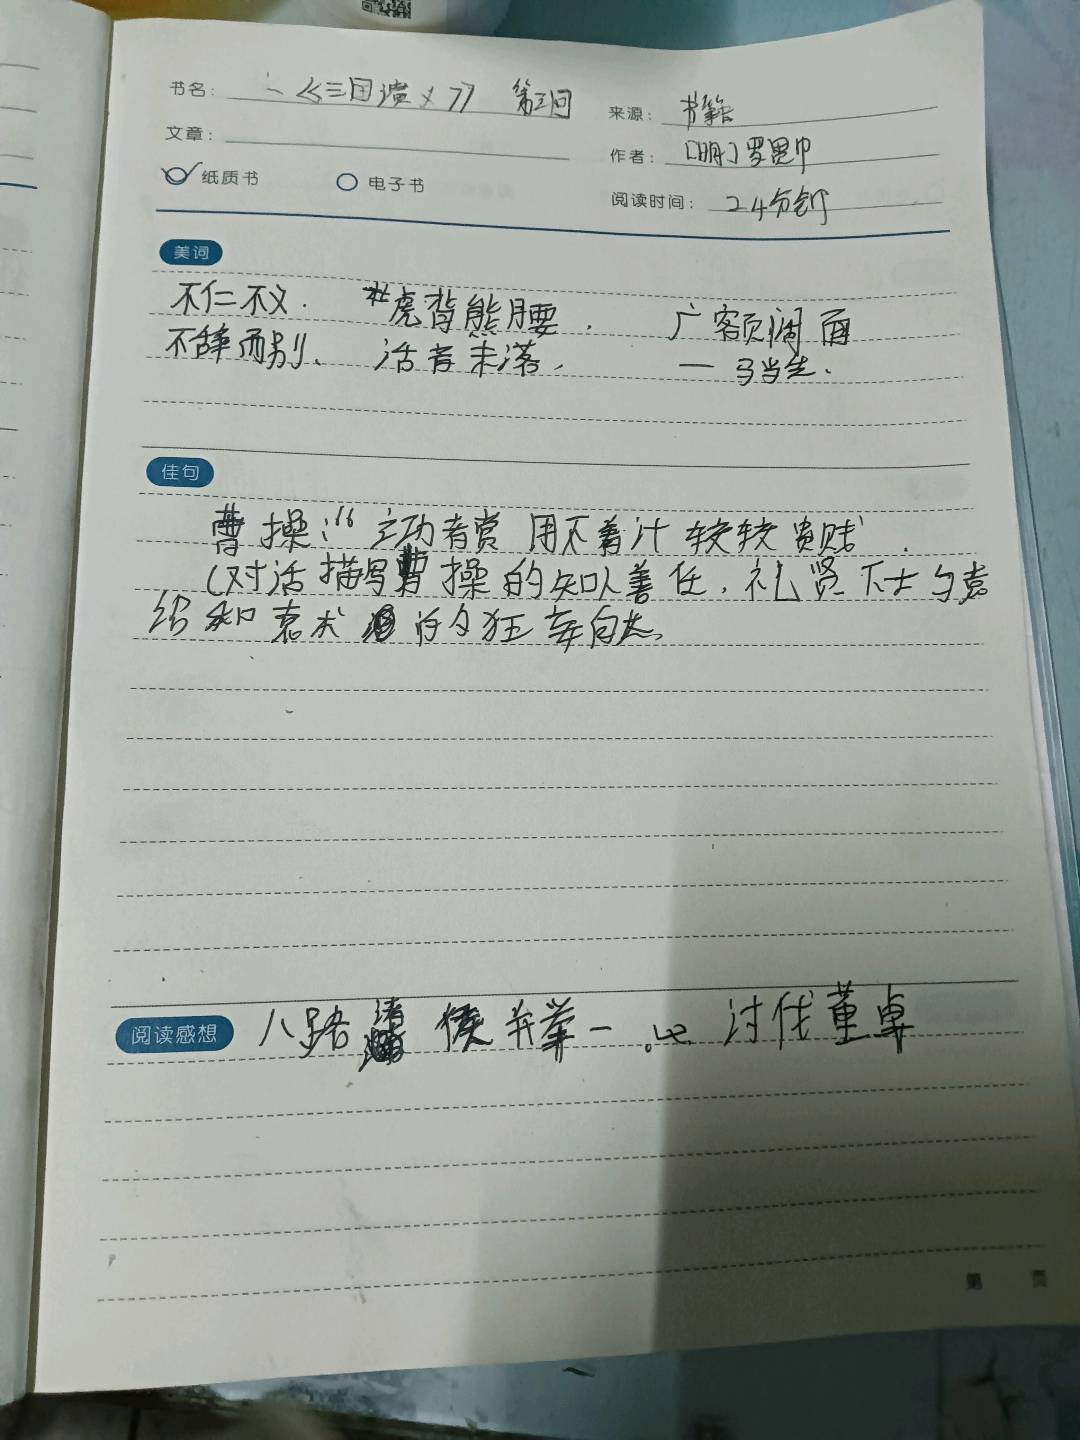 书名： 《三国演义》 第三回
来源： 书籍
文章：
作者： [明]罗贯中
纸质书 电子书
阅读时间： 24分钟
美词
不仁不义. 虎背熊腰. 广额阔面
不辞而别、 话音未落. 一马当先.
佳句
曹操:“立功者赏 用不着计较较贵贱.
(对话描写曹操的知人善任,礼贤下士与袁
绍和袁术 的 狂妄自大。
阅读感想 八路诸侯共举一 讨伐董卓
第 页